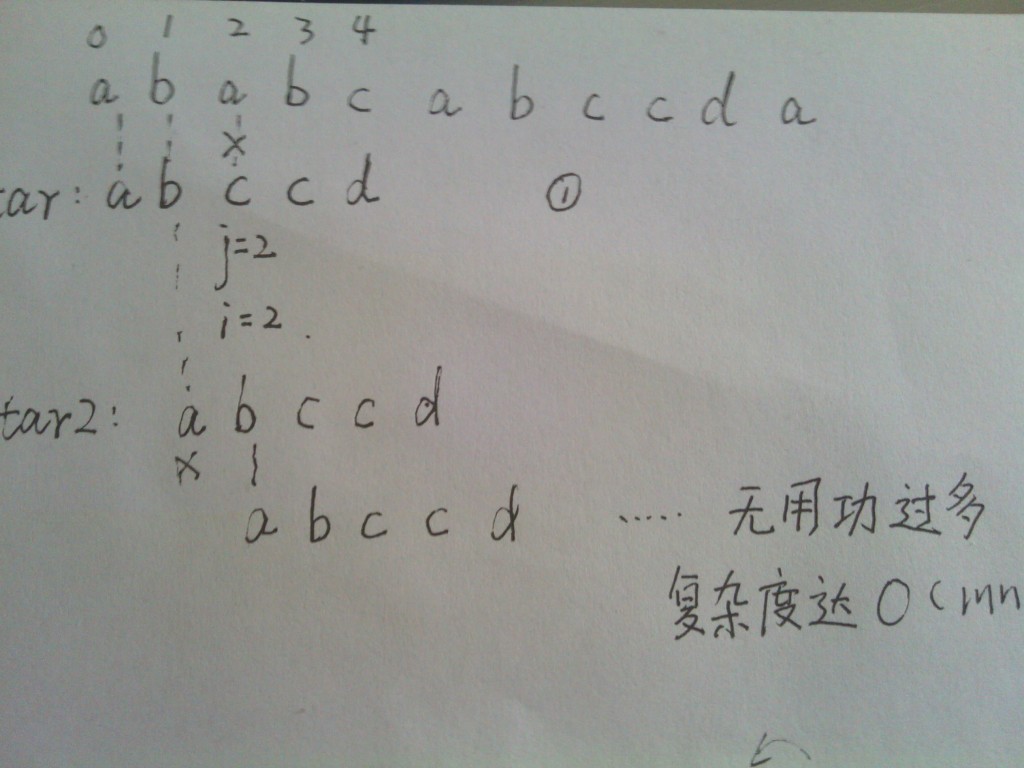 0 1 2 3 4
a b a b c a b c c d a
×
tar: a b c c d ①
j=2
i=2.
tar2: a b c c d
×
a b c c d ..... 无用功过多
复杂度达 O(mn